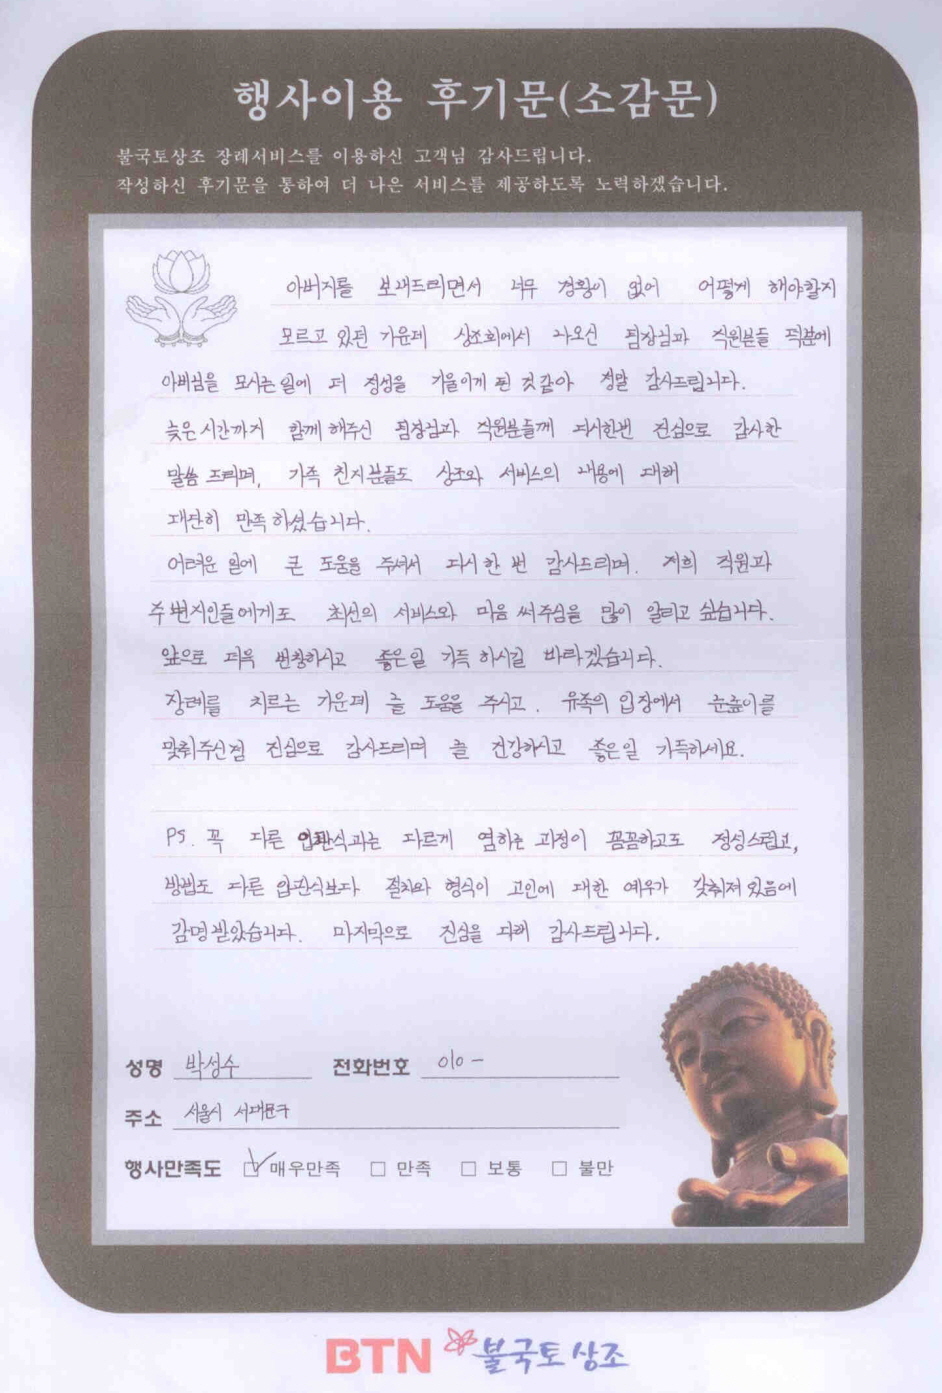 행사이용 후기문(소감문)
불국토상조 장례서비스를 이용하신 고객님 감사드립니다.
작성하신 후기문을 통하여 더 나은 서비스를 제공하도록 노력하겠습니다.
아버지를 보내드리면서 너무 경황이 없어 어떻게 해야할지
모르고 있던 가운데 상조회에서 나오신 팀장님과 직원분들 덕분에
아버님을 모시는 일에 더 정성을 기울이게 된 것 같아 정말 감사드립니다.
늦은 시간까지 함께 해주신 팀장님과 직원분들께 다시한번 진심으로 감사한
말씀 드리며, 가족 친지분들도 상조와 서비스의 내용에 대해
대단히 만족 하셨습니다.
어려운 일에 큰 도움을 주셔서 다시 한 번 감사드리며. 저희 직원과
주변지인들에게도 최선의 서비스와 마음 써주심을 많이 알리고 싶습니다.
앞으로 더욱 번창하시고 좋은일 가득 하시길 바라겠습니다.
장례를 치르는 가운데 늘 도움을 주시고. 유족의 입장에서 눈높이를
맞춰주신점 진심으로 감사드리며 늘 건강하시고 좋은일 가득하세요.
PS. 꼭 다른 입관식과는 다르게 염하는 과정이 꼼꼼하고도 정성스럽고,
방법도 다른 입관식보다 절차와 형식이 고인에 대한 예우가 갖춰져 있음에
감명받았습니다. 마지막으로 진심을 다해 감사드립니다.
성명 박성수 전화번호 010-
주소 서울시 서대문구
행사만족도 ☑매우만족 □ 만족 □ 보통 □ 불만
BTN 불국토상조